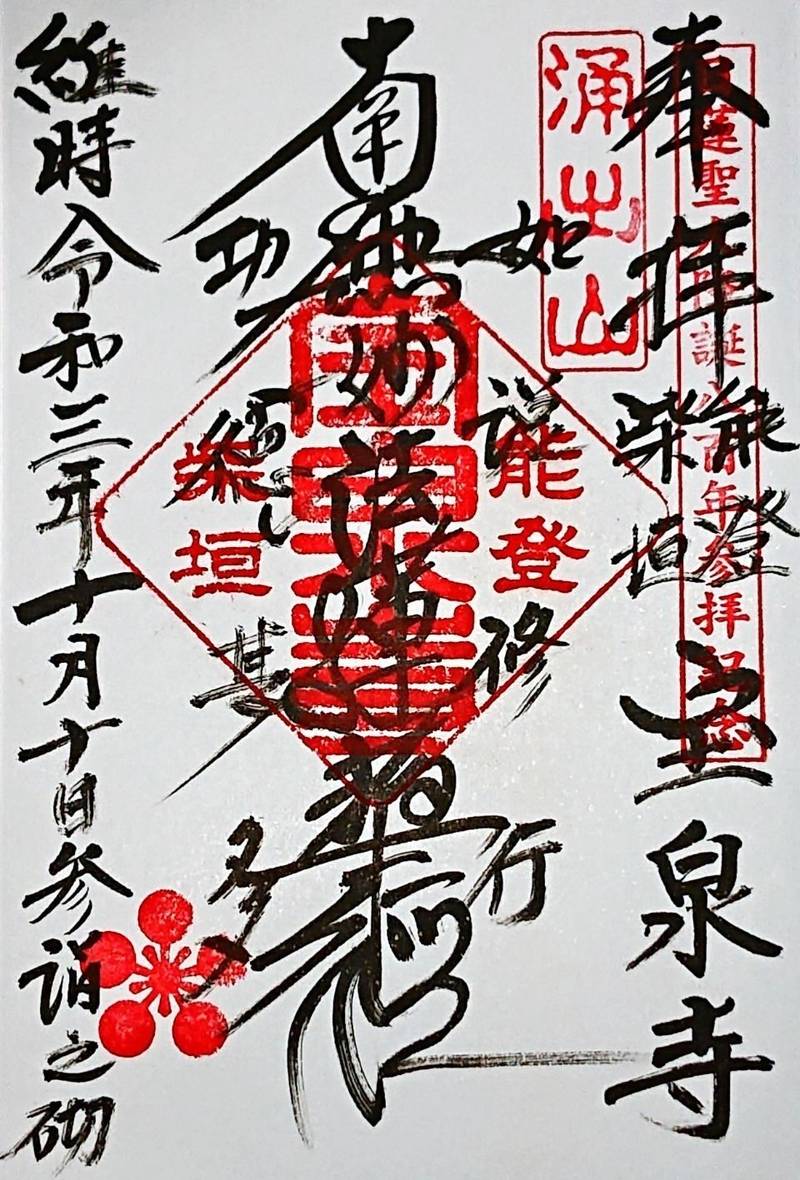 奉拝 能登柴垣 宝泉寺
日蓮聖人降誕八百年参拝記念
涌出山
如説修行
能登
南無妙法蓮華経
柴垣
功徳甚多
維時令和三年十月十日参詣之砌